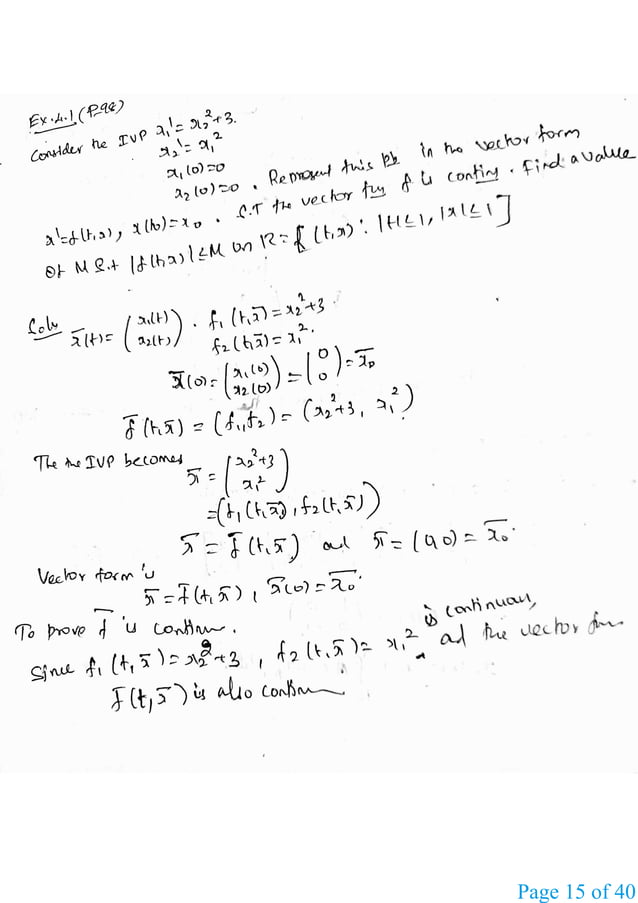 Ex.4.1 (P-98)
Consider the IVP x₁' = x₂²+3.
x₂' = x₁²
x₁(0)=0
x₂(0)=0. Represent this pb in the vector form
x'=f(t,x), x(t₀)=x₀. S.T the vector fn f is contins. Find a value
of M S.t |f(t,x)| ≤ M on R = { (t,x): |t| ≤ 1, |x| ≤ 1 ]
Soln x̄(t) = (x₁(t) x₂(t)). f₁(t,x̄) = x₂²+3.
f₂(t,x̄) = x₁².
x̄(0) = (x₁(0) x₂(0)) = (0 0) = x̄₀
f̄(t,x̄) = (f₁,f₂) = (x₂²+3, x₁²)
The the IVP becomes x̄ = (x₂²+3 x₁²)
=(f₁(t,x̄), f₂(t,x̄))
x̄ = f̄(t,x̄) and x̄ = (0,0) = x̄₀.
Vector form is
x̄ = f̄(t,x̄), x̄(0) = x̄₀.
To prove f̄ is contin.
Since f₁(t,x̄) = x₂²+3, f₂(t,x̄) = x₁² is continuous, and the vector fn
f̄(t,x̄) is also contin
Page 15 of 40